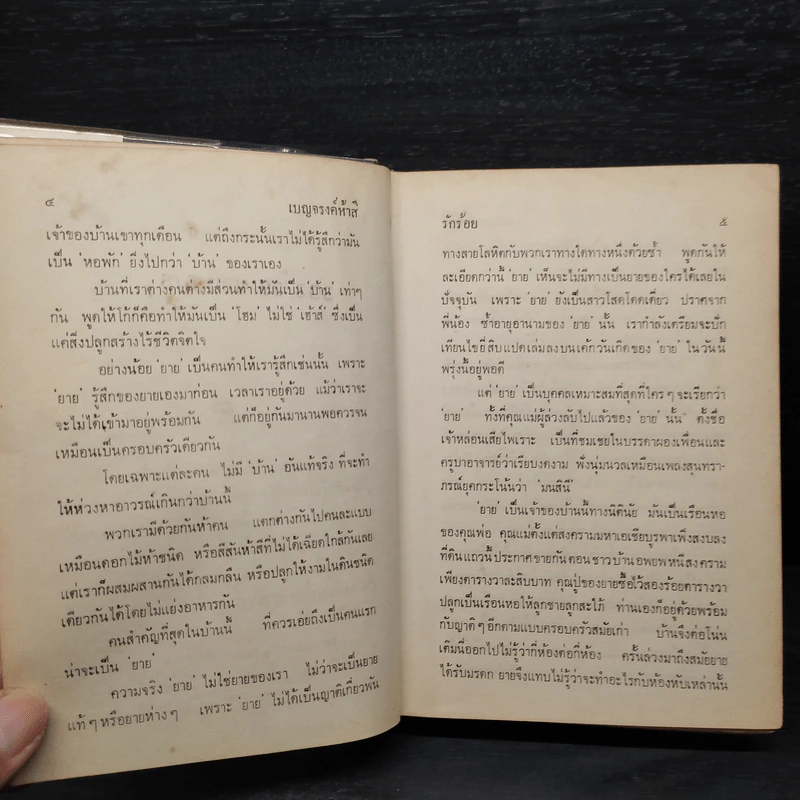 ๔
เบญจรงค์ห้าสี
เจ้าของบ้านเขาทุกเดือน แต่ถึงกระนั้นเราไม่ได้รู้สึกว่ามัน
เป็น 'หอพัก' ยิ่งไปกว่า 'บ้าน' ของเราเอง
บ้านที่เราต่างคนต่างมีส่วนทำให้มันเป็น 'บ้าน' เท่าๆ
กัน พูดให้โก้ก็คือทำให้มันเป็น 'โฮม' ไม่ใช่ 'เฮ้าส์' ซึ่งเป็น
แค่สิ่งปลูกสร้างไร้ชีวิตจิตใจ
อย่างน้อย 'ยาย' เป็นคนทำให้เรารู้สึกเช่นนั้น เพราะ
'ยาย' รู้สึกของยายเองมาก่อน เวลาเราอยู่ด้วย แม้ว่าเราจะ
จะไม่ได้เข้ามาอยู่พร้อมกัน แต่ก็อยู่กันมานานพอควรจน
เหมือนเป็นครอบครัวเดียวกัน
โดยเฉพาะแต่ละคน ไม่มี 'บ้าน' อันแท้จริง ที่จะทำ
ให้ห่วงหาอาวรณ์เกินกว่าบ้านนี้
พวกเรามีด้วยกันห้าคน แตกต่างกันไปคนละแบบ
เหมือนดอกไม้ห้าชนิด หรือสีสันห้าสีที่ไม่ได้เฉียดใกล้กันเลย
แต่เราก็ผสมผสานกันได้กลมกลืน หรือปลูกให้งามในดินชนิด
เดียวกันได้โดยไม่แย่งอาหารกัน
คนสำคัญที่สุดในบ้านนี้ ที่ควรเอ่ยถึงเป็นคนแรก
น่าจะเป็น 'ยาย'
ความจริง 'ยาย' ไม่ใช่ยายของเรา ไม่ว่าจะเป็นยาย
แท้ๆ หรือยายห่างๆ เพราะ 'ยาย' ไม่ได้เป็นญาติเกี่ยวพัน
รักร้อย
๕
ทางสายโลหิตกับพวกเราทางใดทางหนึ่งด้วยซ้ำ พูดกันให้
ละเอียดกว่านี้ 'ยาย' เห็นจะไม่มีทางเป็นยายของใครได้เลยใน
ปัจจุบัน เพราะ 'ยาย' ยังเป็นสาวโสดโดดเดี่ยว ปราศจาก
พี่น้อง ซ้ำอายุอานามของ 'ยาย' นั้น เรากำลังเตรียมจะปัก
เทียนไขยี่สิบแปดเล่มลงบนเค้กวันเกิดของ 'ยาย' ในวันนี้
พรุ่งนี้อยู่พอดี
แต่ 'ยาย' เป็นบุคคลเหมาะสมที่สุดที่ใครๆ จะเรียกว่า
'ยาย' ทั้งที่คุณแม่ผู้ล่วงลับไปแล้วของ 'ยาย' นั้น ตั้งชื่อ
เจ้าหล่อนเสียไพเราะ เป็นที่ชมเชยในบรรดาผองเพื่อนและ
ครูบาอาจารย์ว่าเรียบงดงาม ฟังนุ่มนวลเหมือนเพลงสุนทรา-
ภรณ์ยุคกระโน้นว่า 'มนสินี'
'ยาย' เป็นเจ้าของบ้านนี้ทางนิตินัย มันเป็นเรือนหอ
ของคุณพ่อ คุณแม่ตั้งแต่สงครามมหาเอเชียบูรพาเพิ่งสงบลง
ที่ดินแถวนี้ประกาศขายกัน ตอนชาวบ้านอพยพหนีสงคราม
เพียงตารางวาละสิบบาท คุณปู่ของยายซื้อไว้สองร้อยตารางวา
ปลูกเป็นเรือนหอให้ลูกชายลูกสะใภ้ ท่านเองก็อยู่ด้วยพร้อม
กับญาติๆ อีกตามแบบครอบครัวสมัยเก่า บ้านจึงต่อโน่น
เติมนี่ออกไปไม่รู้ว่ากี่ห้องต่อกี่ห้อง ครั้นล่วงมาถึงสมัยยาย
ได้รับมรดก ยายจึงแทบไม่รู้ว่าจะทำอะไรกับห้องหับเหล่านั้น